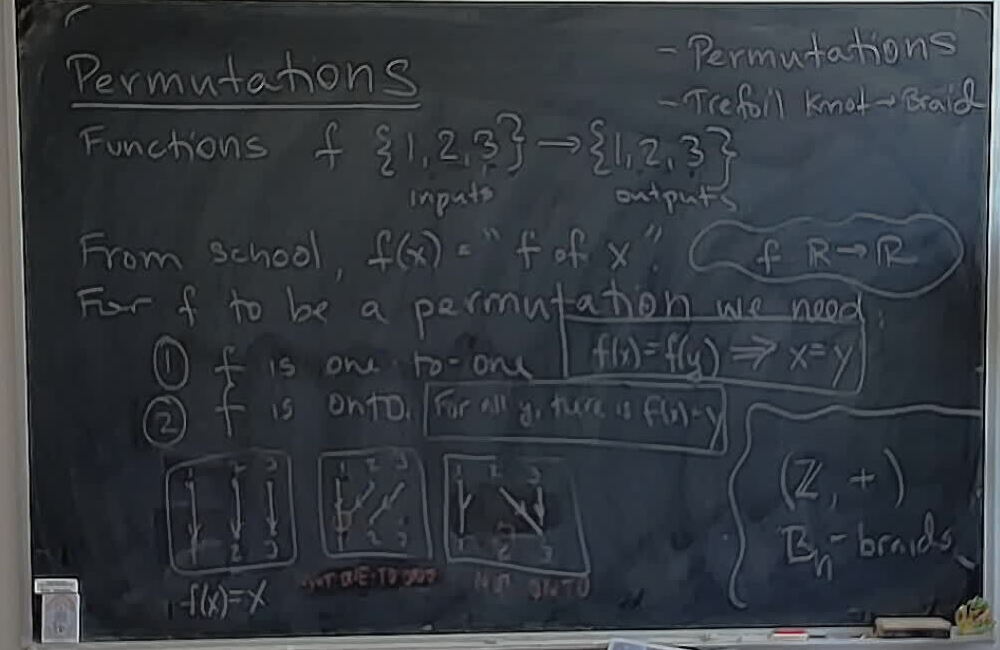 Permutations
- Permutations
- Trefoil Knot → Braid
Functions f {1, 2, 3} → {1, 2, 3}
inputs outputs
From school, f(x) = "f of x".
f ℝ → ℝ
For f to be a permutation we need:
① f is one-to-one
f(x) = f(y) ⇒ x = y
② f is onto.
For all y, there is f(x) = y
1 2 3
1 2 3
f(x) = x
1 2 3
1 2 3
NOT ONE-TO-ONE
1 2 3
1 2 3
NOT ONTO
(ℤ, +)
Bn - braids